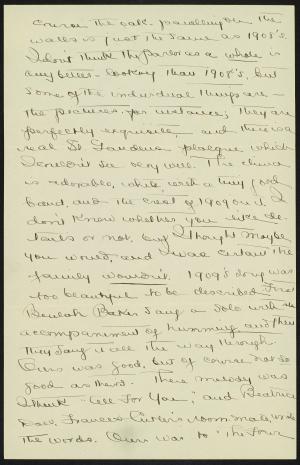 course the oak-paneling on the
walls is just the same as 1908's.
I don't think the parlor as a whole is
any better-looking than 1908's, but
some of the individual things are —
the pictures, for instance; they are
perfectly exquisite, and there is a
real St. Gaudens plaque, which
I couldn't see very well. The china
is adorable, white with a tiny gold
band, and the crest of 1909 on it. I
don't know whether you like de-
tails or not, but I thought maybe
you would, and I was certain the
family wouldn't. 1909's song was
too beautiful to be described. First
Beulah Baker sang a solo with an
accompaniment of humming and then
they sang it all the way through.
Ours was good, but of course not so
good as theirs. Their melody was
I think "All For You", and Beatrice
Frances Cutler's room-mate, wrote
the words. Ours was to "The Four